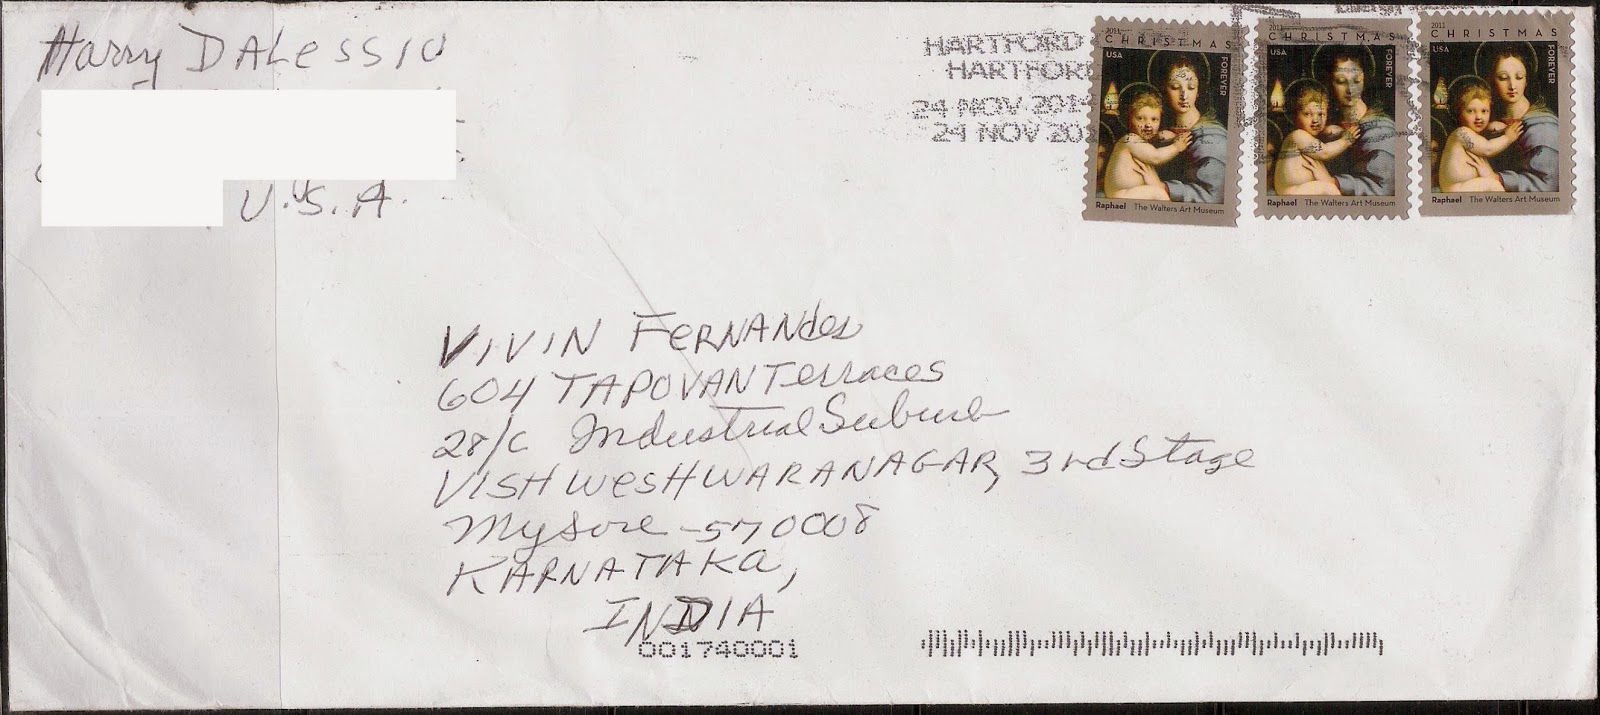 Harry DALessio
U.S.A.
HARTFORD
HARTFORD
24 NOV 2014
24 NOV 20
2011
CHRISTMAS
USA
FOREVER
Raphael The Walters Art Museum
2011
CHRISTMAS
USA
FOREVER
Raphael The Walters Art Museum
2011
CHRISTMAS
USA
FOREVER
Raphael The Walters Art Museum
VIVIN FERNANdes
604 TAPOVAN Terraces
28/C Industrial Suburb
VISHWesHWARANAGAR, 3rd Stage
Mysore - 570008
KARNATAKa,
INDIA
001740001